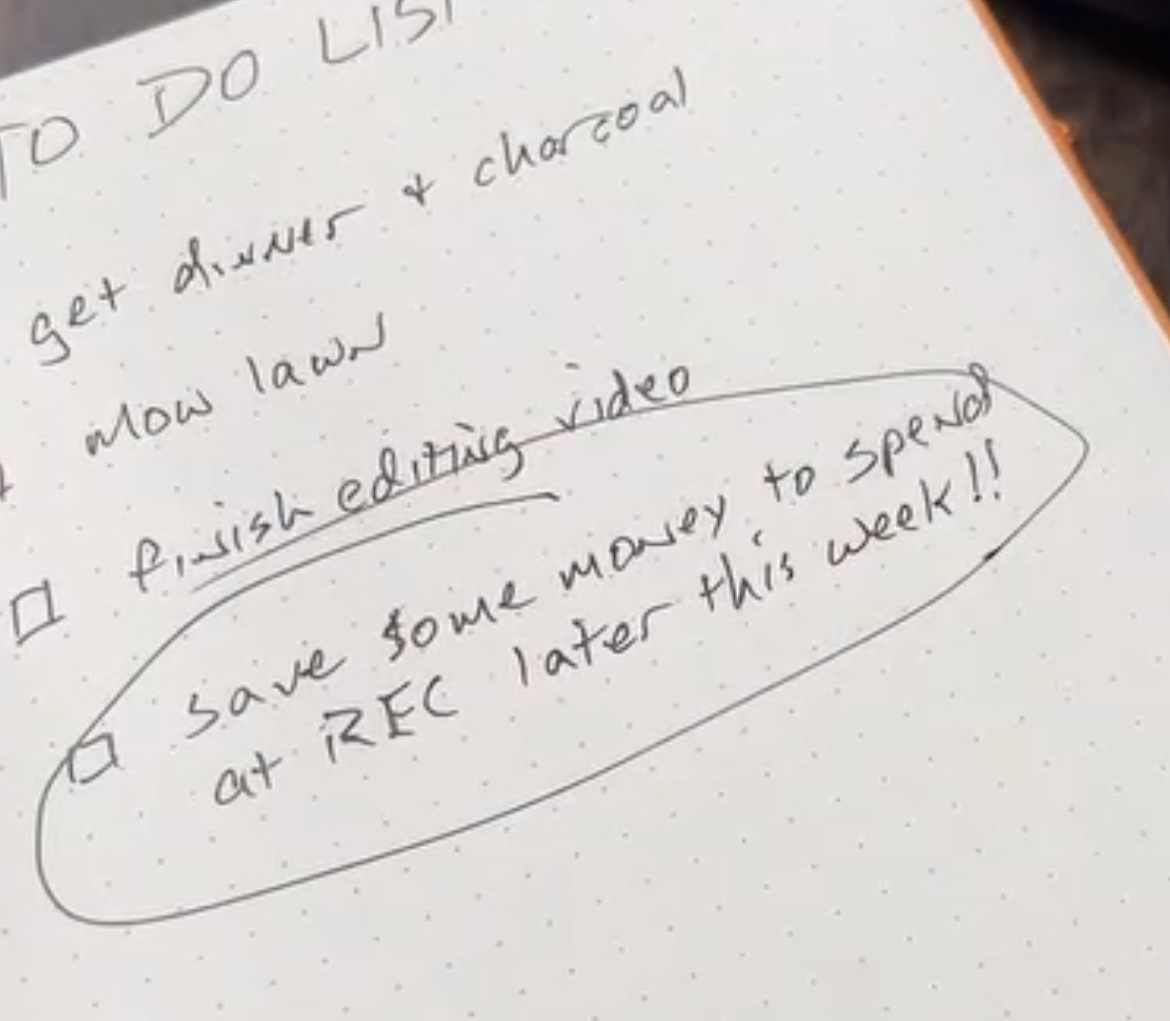 TO DO LIST
get dinner + charcoal
Mow lawn
finish editing video
save some money to spend
at REC later this week!!